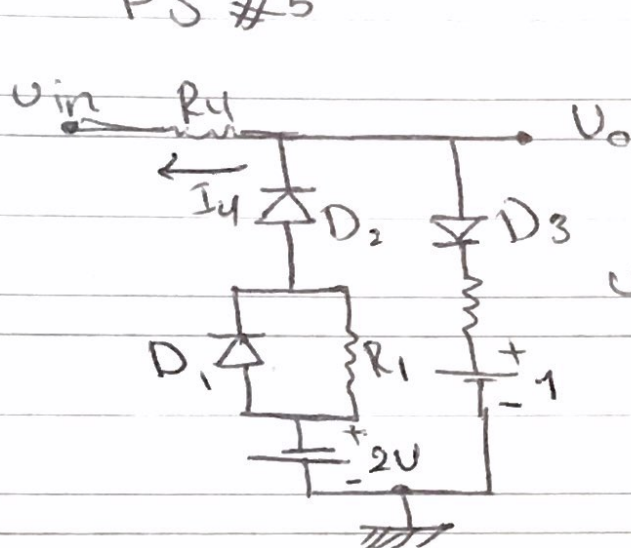 PS #5
Vin R4 Vo
I4 D2 D3
D1 R1 + - 1
+ - 2V